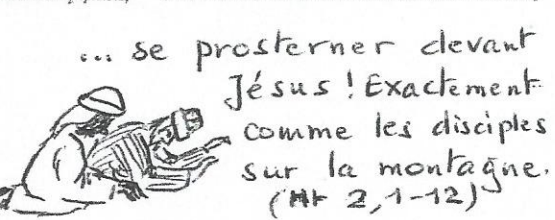 ... se prosterner devant
Jésus ! Exactement
comme les disciples
sur la montagne.
(Mt 2,1-12)